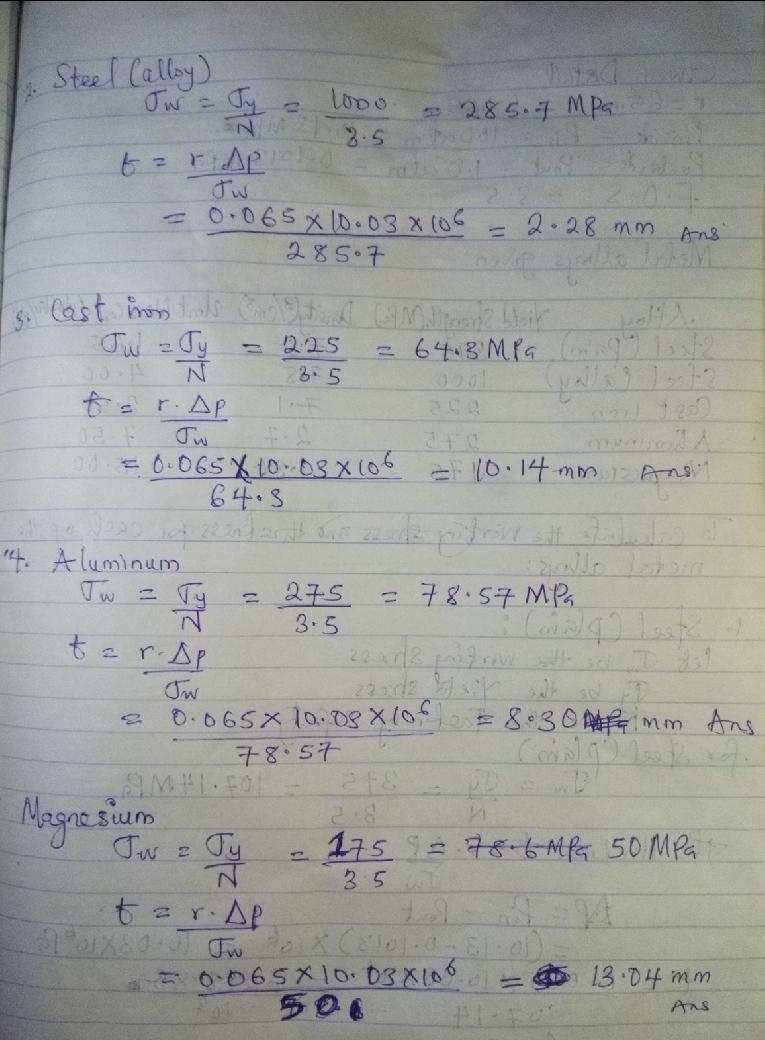 2. Steel (alloy)
σw = σy/N = 1000/3.5 = 285.7 MPa
t = r·Δp/σw
= 0.065 × 10.03 × 10⁶/285.7 = 2.28 mm Ans
3. Cast iron
σw = σy/N = 225/3.5 = 64.3 MPa
t = r·Δp/σw
= 0.065 × 10.03 × 10⁶/64.3 = 10.14 mm Ans
4. Aluminum
σw = σy/N = 275/3.5 = 78.57 MPa
t = r·Δp/σw
= 0.065 × 10.03 × 10⁶/78.57 = 8.30 mm Ans
Magnesium
σw = σy/N = 175/35 = 78.6 MPa 50 MPa
t = r·Δp/σw
= 0.065 × 10.03 × 10⁶/50 = 13.04 mm
Ans